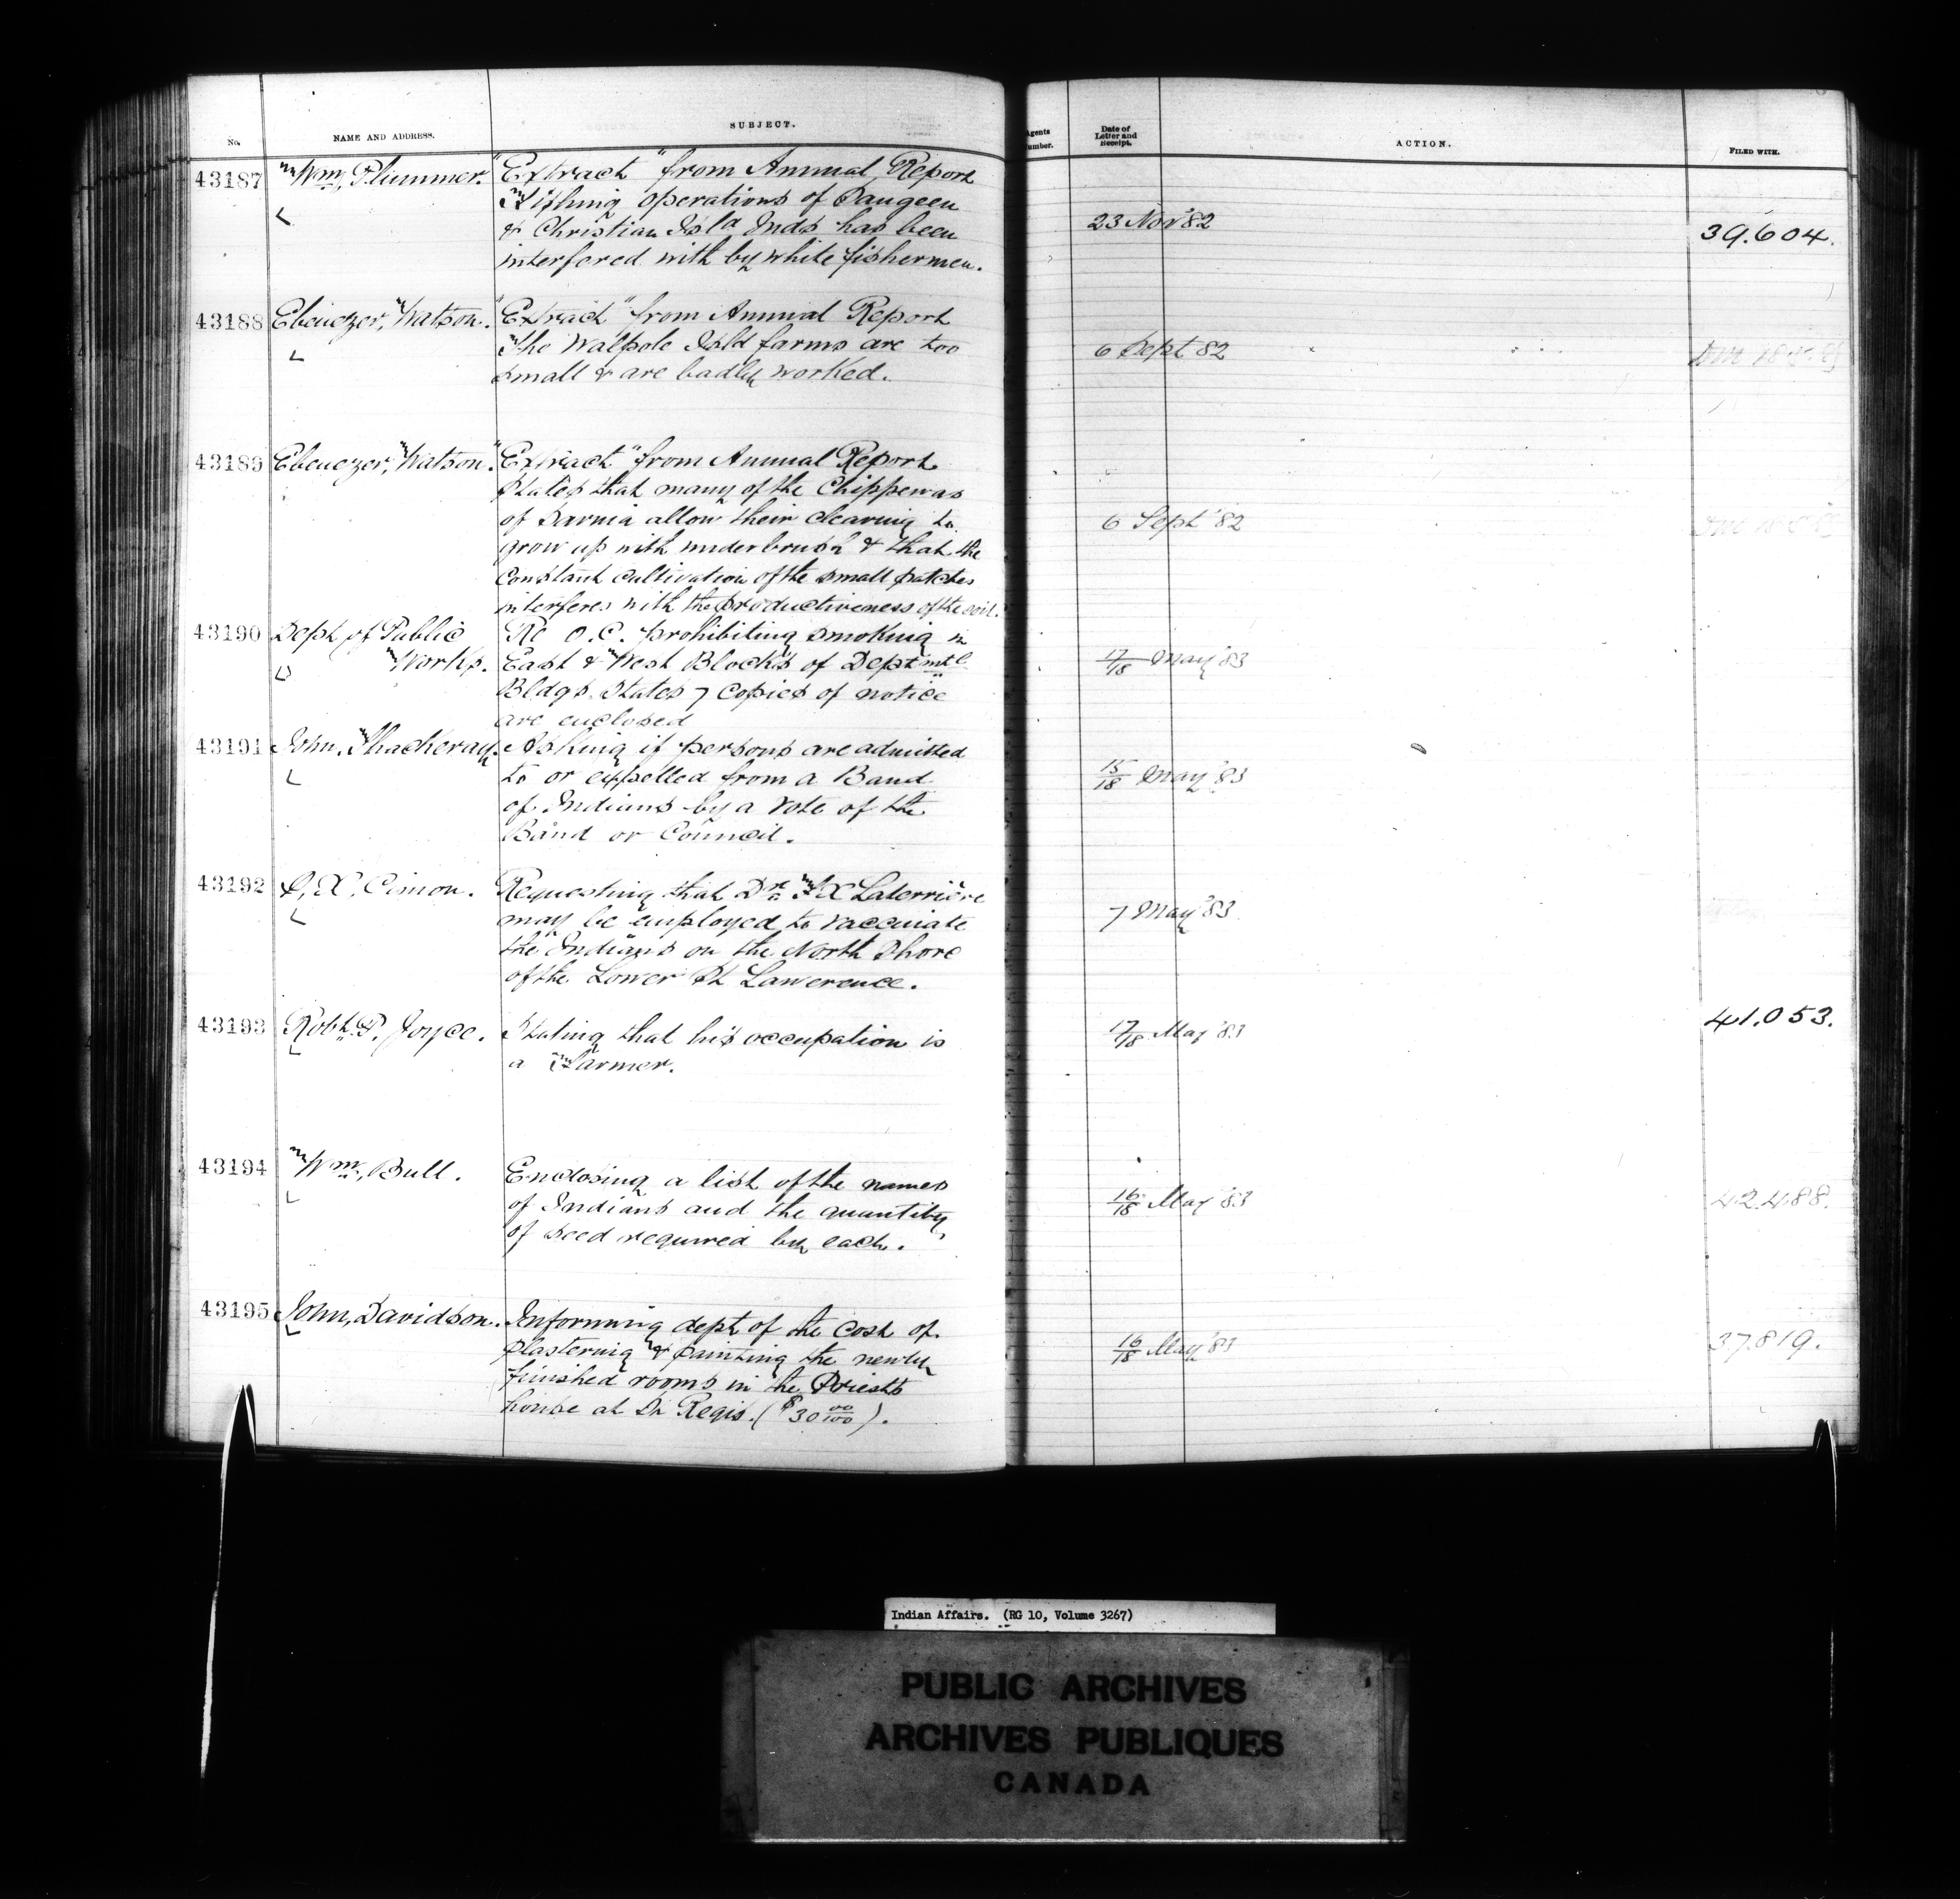 No. NAME AND ADDRESS. SUBJECT. Agents Number. Date of Letter and Receipt. ACTION. FILED WITH.
43187 Wm, Plummer. "Extract" from Annual Report
Fishing operations of Saugeen
& Christian Isld Inds has been 23 Nov '82 39.604.
interfered with by white fishermen.
43188 Ebenezer, Watson. "Extract" from Annual Report
The Walpole Isld farms are too 6 Sept 82
small & are badly worked.
43189 Ebenezer, Watson. "Extract" from Annual Report
States that many of the Chippewas
of Sarnia allow their clearing to 6 Sept '82
grow up with underbrush & that the
constant cultivation of the small patches
interferes with the productiveness of the soil.
43190 Dept of Public Re O.C. prohibiting smoking in
Works. East & West Blocks of Deptmtl 17/18 May '83
Bldgs. States 7 copies of notice
are enclosed
43191 John, Thackeray. Asking if persons are admitted
to or expelled from a Band 15/18 May '83
of Indians by a vote of the
Band or Council.
43192 S, X, Cimon. Requesting that Dr F X Laterrière
may be employed to vaccinate 7 May '83
the Indians on the North Shore
of the Lower St Lawerence.
43193 Robt. P. Joyce. Stating that his occupation is 17/18 May '83 41.053.
a Farmer.
43194 Wm, Bull. Enclosing a list of the names
of Indians and the quantity 16/18 May '83 42.488.
of seed required by each.
43195 John, Davidson. Informing dept of the cost of
plastering & painting the newly 16/18 May '83 37.819.
finished rooms in the Priests
house at St Regis. ($30 00/100).
Indian Affairs. (RG 10, Volume 3267)
PUBLIC ARCHIVES
ARCHIVES PUBLIQUES
CANADA